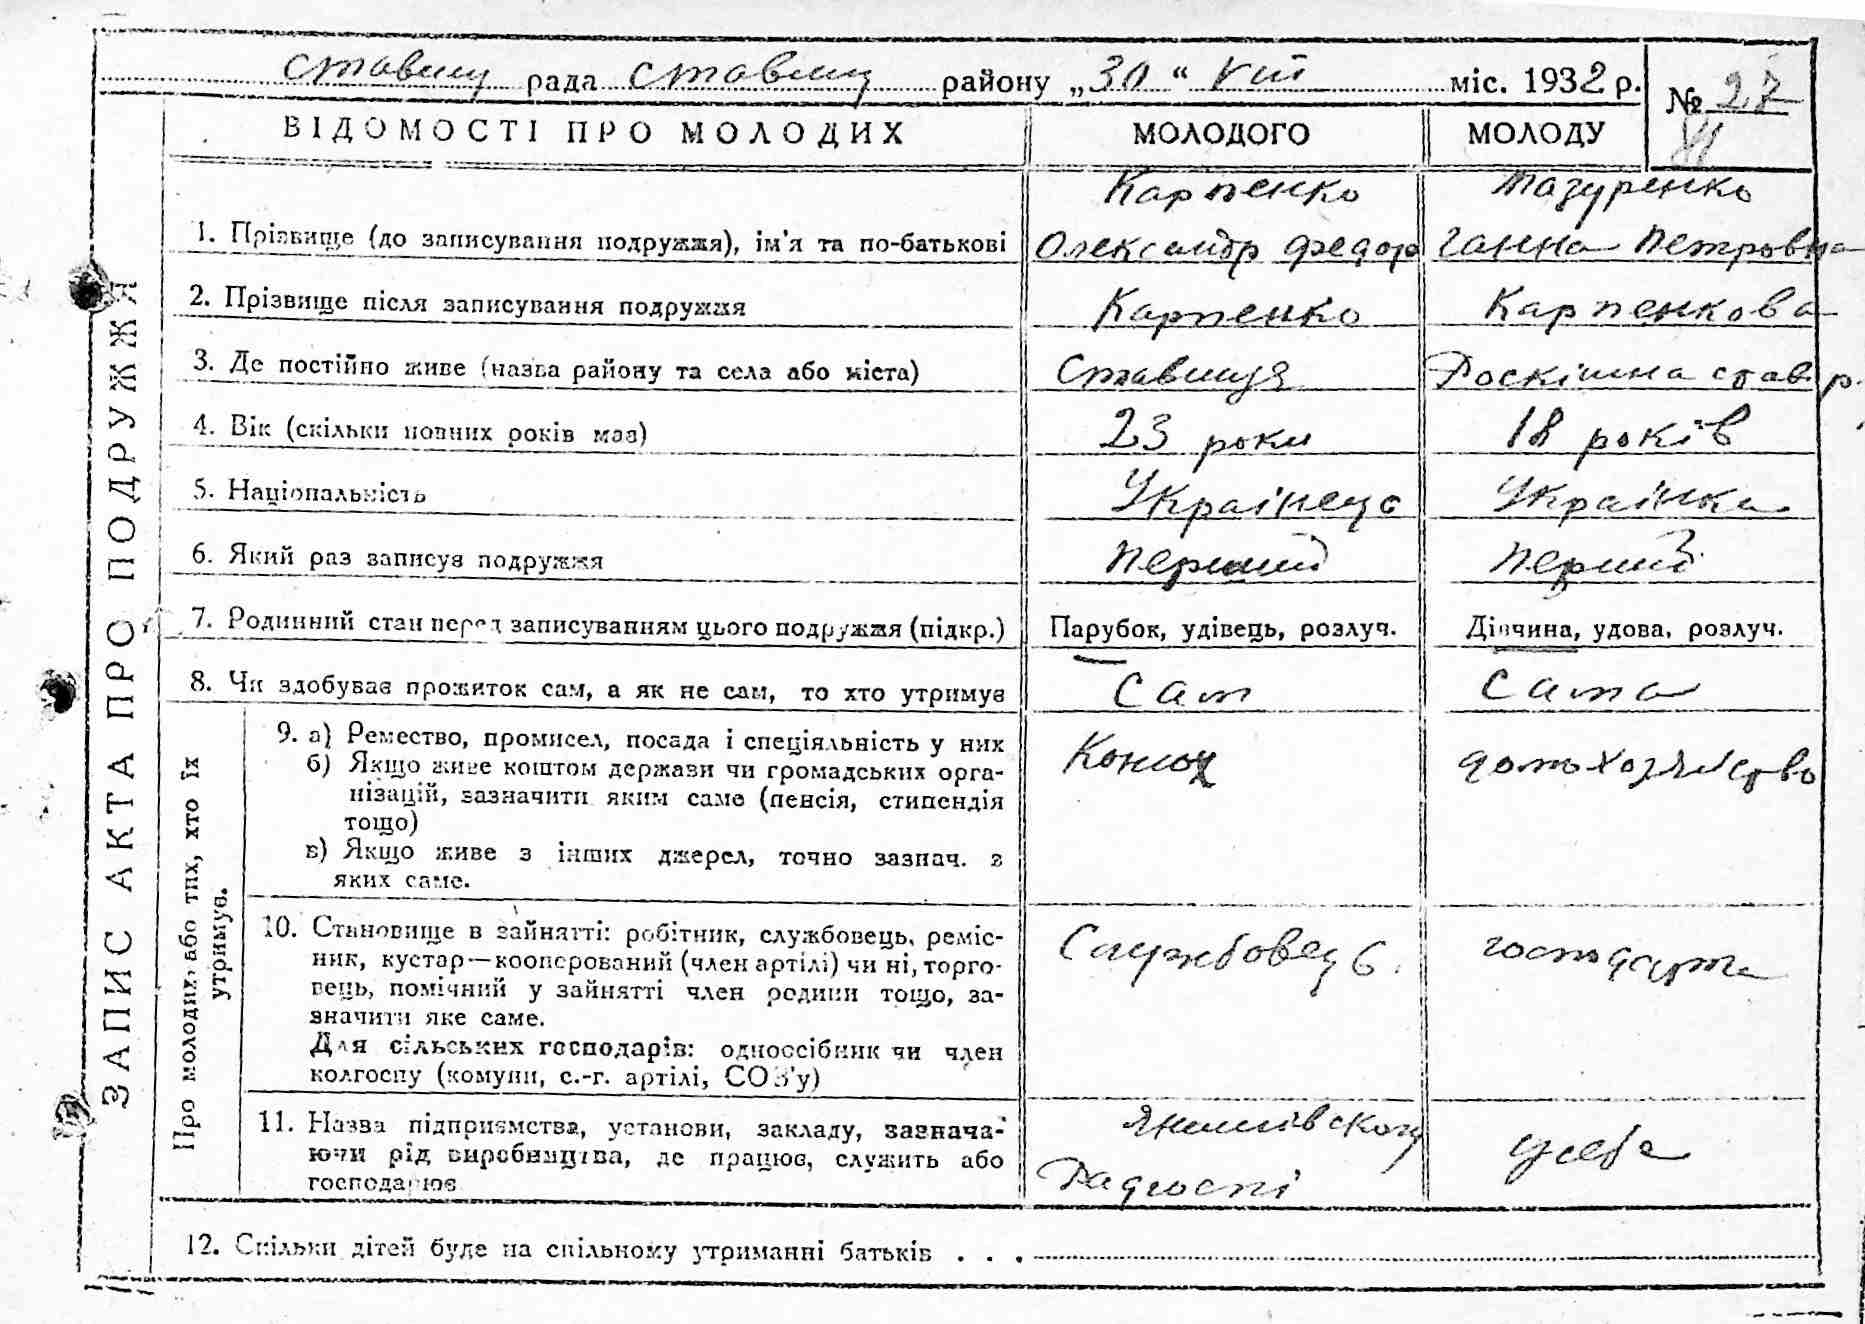 Ставищ рада Ставищ району „30“ VIII міс. 1932 р.
№ 27
VI
ЗАПИС АКТА ПРО ПОДРУЖЖЯ
ВІДОМОСТІ ПРО МОЛОДИХ МОЛОДОГО МОЛОДУ
Карпенко Мазуренко
1. Прізвище (до записування подружжя), ім'я та по-батькові Олександр Федор Ганна Петровна
2. Прізвище після записування подружжя Карпенко Карпенкова
3. Де постійно живе (назва району та села або міста) Ставища Роскішна став. р.
4. Вік (скільки повних років має) 23 роки 18 років
5. Національність Українець Українка
6. Який раз записує подружжя Перший Перший
7. Родинний стан перед записуванням цього подружжя (підкр.) Парубок, удівець, розлуч. Дівчина, удова, розлуч.
8. Чи здобуває прожиток сам, а як не сам, то хто утримує Сам Сама
Про молодих або тих, хто їх
утримує.
9. а) Ремество, промисел, посада і спеціяльність у них Конюх домохозяйство
б) Якщо живе коштом держави чи громадських орга-
нізацій, зазначити яким саме (пенсія, стипендія
тощо)
в) Якщо живе з інших джерел, точно зазнач. з
яких саме.
10. Становище в зайнятті: робітник, службовець, реміс- Службовець
ник, кустар—кооперований (член артілі) чи ні, торго-
вець, помічний у зайнятті член родини тощо, за-
значити яке саме.
Для сільських господарів: одноосібник чи член
колгоспу (комуни, с.-г. артілі, СОЗ'у)
11. Назва підприємства, установи, закладу, зазнача-
ючи рід виробництва, де працює, служить або у себе
господарює Радгоспі
12. Скільки дітей буде на спільному утриманні батьків . . .